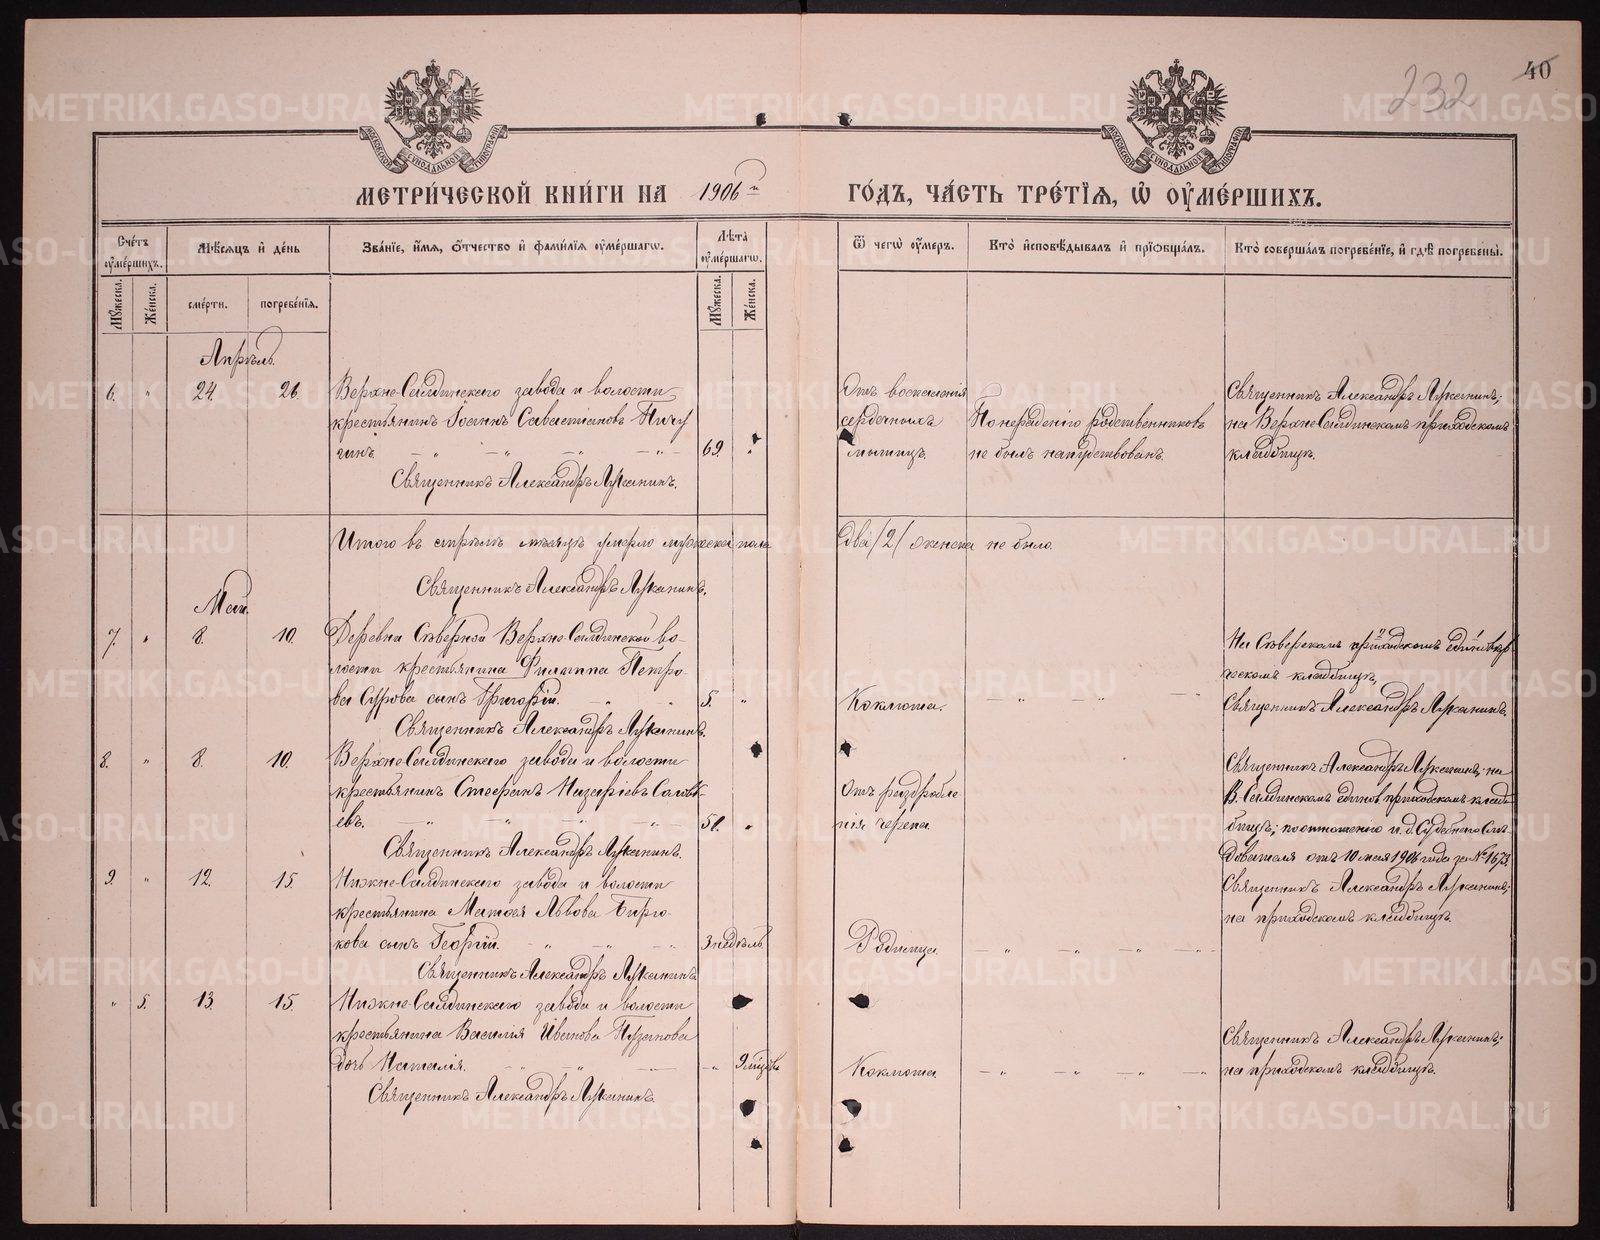 40
232
МЕТРИЧЕСКОЙ КНИГИ НА 1906 й ГОДЪ, ЧАСТЬ ТРЕТІЯ, Ѿ ОУМЕРШИХЪ.
Счетъ оумершихъ.
Мѣсяцъ и день
Званіе, имя, отчество и фамилія оумершагѡ.
Лѣта оумершагѡ.
Ѿ чегѡ оумеръ.
Кто исповѣдывалъ и пріѡбщалъ.
Кто совершалъ погребеніе, и гдѣ погребены.
Мужеска.
Женска.
смерти.
погребенія.
Мужеска.
Женска.
Апрѣль.
6. " 24. 26.
Верхне-Салдинскаго завода и волости
крестьянинъ Іоаннъ Савастіановъ Пичу
гинъ. 69. "
Священникъ Александръ Луканинъ.
Отъ воспаленія
сердечныхъ
мышицъ.
По нерадѣнію родственниковъ
не былъ напутствованъ.
Священникъ Александръ Луканинъ;
на Верхне-Салдинскомъ приходскомъ
кладбищѣ.
Итого въ апрѣлѣ мѣсяцѣ умерло мужеска пола
два /2/ женска не было.
Священникъ Александръ Луканинъ.
Май.
7. " 8. 10.
Деревни Сѣверной Верхне-Салдинской во-
лости крестьянина Филиппа Петро-
ва Сурова сынъ Григорій. 5. "
Священникъ Александръ Луканинъ.
Коклюша.
На Сѣверскомъ приходскомъ единовѣр
ческомъ кладбищѣ,
Священникъ Александръ Луканинъ.
8. " 8. 10.
Верхне-Салдинскаго завода и волости
крестьянинъ Стефанъ Назаріевъ
евъ. 51. "
Священникъ Александръ Луканинъ.
Отъ раздробле
нія черепа.
Священникъ Александръ Луканинъ; на
В.-Салдинскомъ единов. приходскомъ клад
бищѣ; по отношенію и. д. Судебнаго Слѣ-
дователя отъ 10 мая 1906 года за №1673.
9. " 12. 15.
Нижне-Салдинскаго завода и волости
крестьянина Матѳея Львова Бирю-
кова сынъ Георгій. 3 недѣль
Священникъ Александръ Луканинъ
Родимца.
Священникъ Александръ Луканинъ;
на приходскомъ кладбищѣ.
" 5. 13. 15.
Нижне-Салдинскаго завода и волости
крестьянина Василія Иванова Пузанова
дочь Наталія. 9 мѣсяцъ
Священникъ Александръ Луканинъ.
Коклюша
Священникъ Александръ Луканинъ;
на приходскомъ кладбищѣ.
METRIKI.GASO-URAL.RU